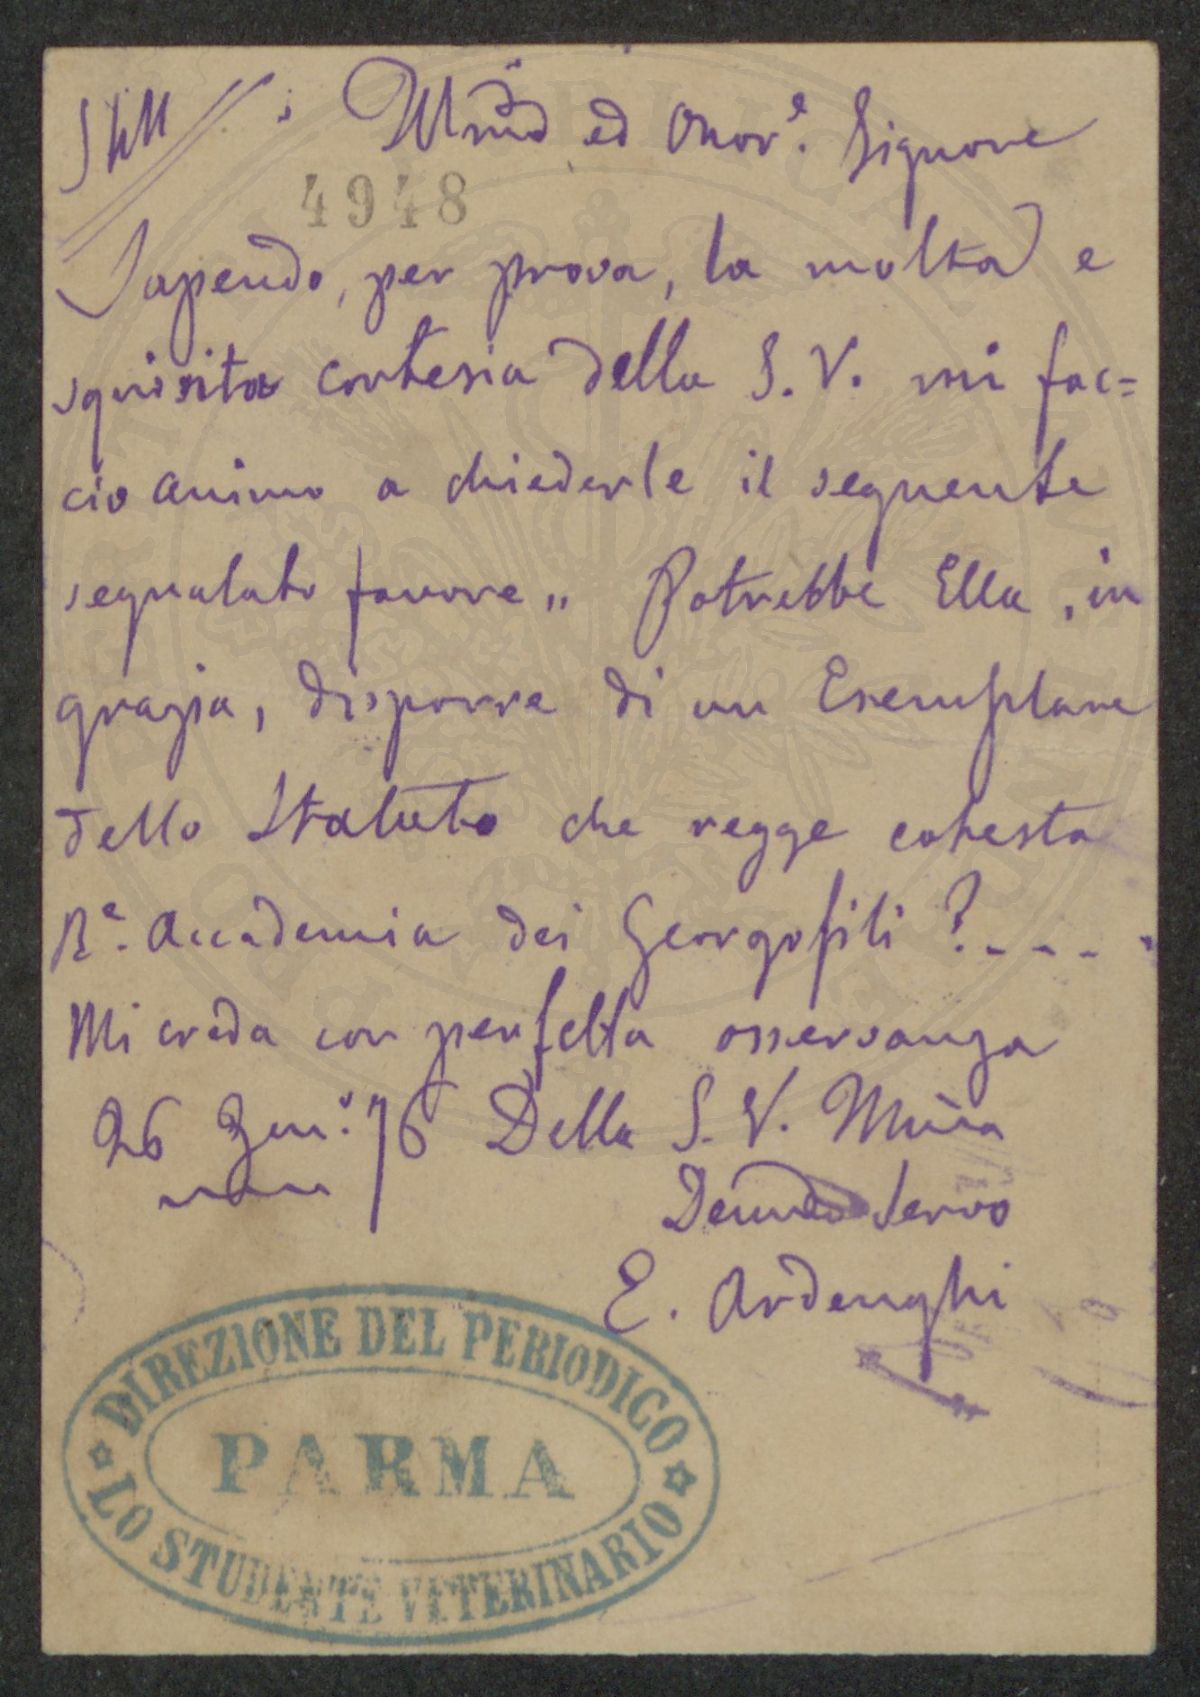 Illmo ed Onor.e Signore
4948
Sapendo, per prova, la molta e
squisita cortesia della S. V. mi fac=
cio animo a chiederle il seguente
segnalato favore „ Potrebbe Ella, in
grazia, disporre di un Esemplare
dello Statuto che regge cotesta
R.a Accademia dei Georgofili ?----
Mi creda con perfetta osservanza
26 Gen.o 76 Della S. V. Illma
Devmo Servo
E. Ardenghi
DIREZIONE DEL PERIODICO
PARMA
LO STUDENTE VETERINARIO